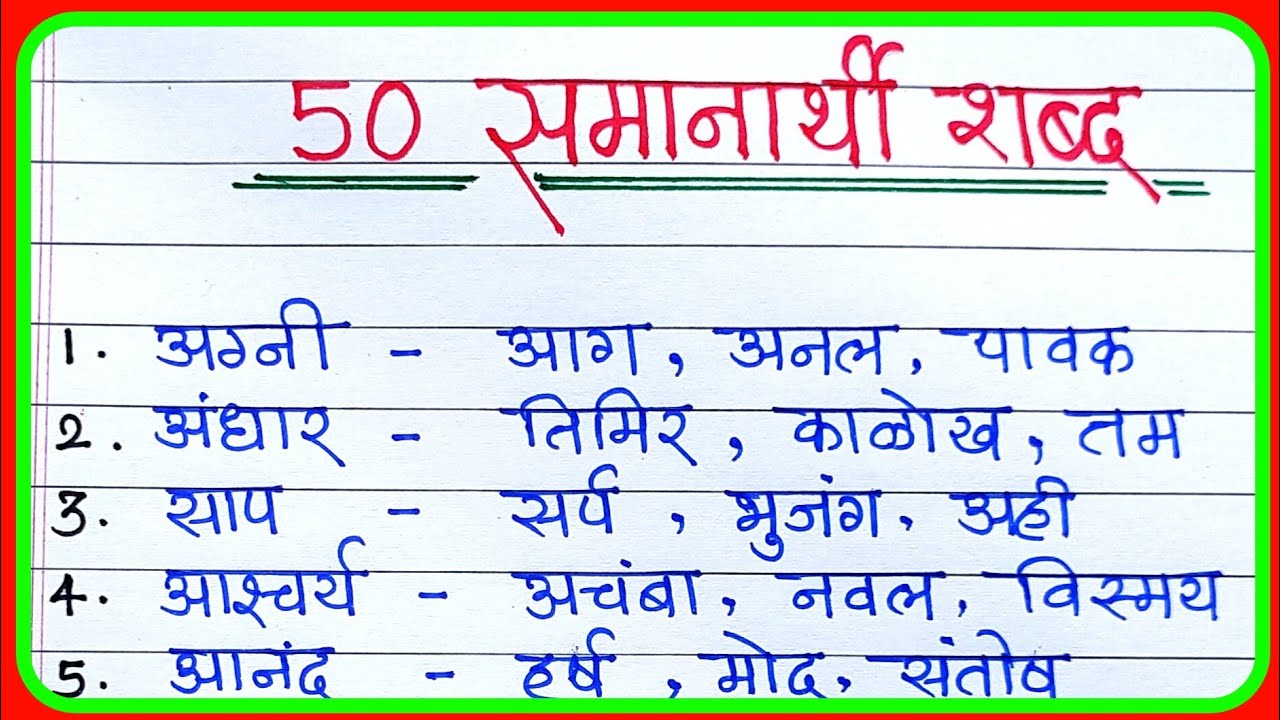 50 समानार्थी शब्द
1. अग्नी - आग, अनल, पावक
2. अंधार - तिमिर, काळोख, तम
3. साप - सर्प, भुजंग, अही
4. आश्चर्य - अचंबा, नवल, विस्मय
5. आनंद - हर्ष, मोद, संतोष